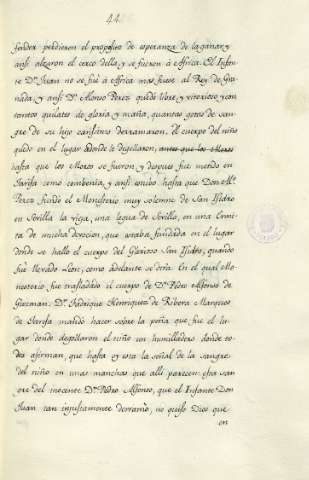 44
perdieron el proposito de esperanza de la ganar y
ansi alzaron el cerco della, y se fueron à Africa. El Infan-
te Dn. Juan no se fuè à Africa mas fuese al Rey de Gra-
nada, y ansi Dn. Alonso Perez quedò libre, y vitorioso, y con
tantos quilates de gloria y maña, quantas gotas de san-
gre de su hijo derramaron. El cuerpo del niño
quedò en el lugar adonde le degollaron, antes que los Moros
hasta que los Moros se fueron, y despues fue metido en
Tarifa como combenia, y ansi estubo hasta que Don Al.º
Perez fundò el Monesterio muy solemne de San Isidro
en Sevilla la vieja, una legua de Sevilla, en una Ermi-
ta de mucha devocion, que estaba fundada en el lugar
donde se hallo el cuerpo del Glorioso San Isidro, quando
fuè llevado à Leon, como adelante se dirà. En el qual Mo-
nesterio fue trasladado el cuerpo de Dn. Pedro Alfonso de
Guzman. Dn. Fadrique Henrriquez de Ribera Marques
de Tarifa mandò hacer sobre la peña que fue el lu-
gar donde degollaron el niño un humilladero donde to-
dos afirman, que hasta oy esta la señal de la sangre
del niño en unas manchas que alli parecen: esta san-
gre del inocente Dn. Pedro Alfonso, que el Infante Don
Juan tan injustamente derramò, no quiso Dios que
en